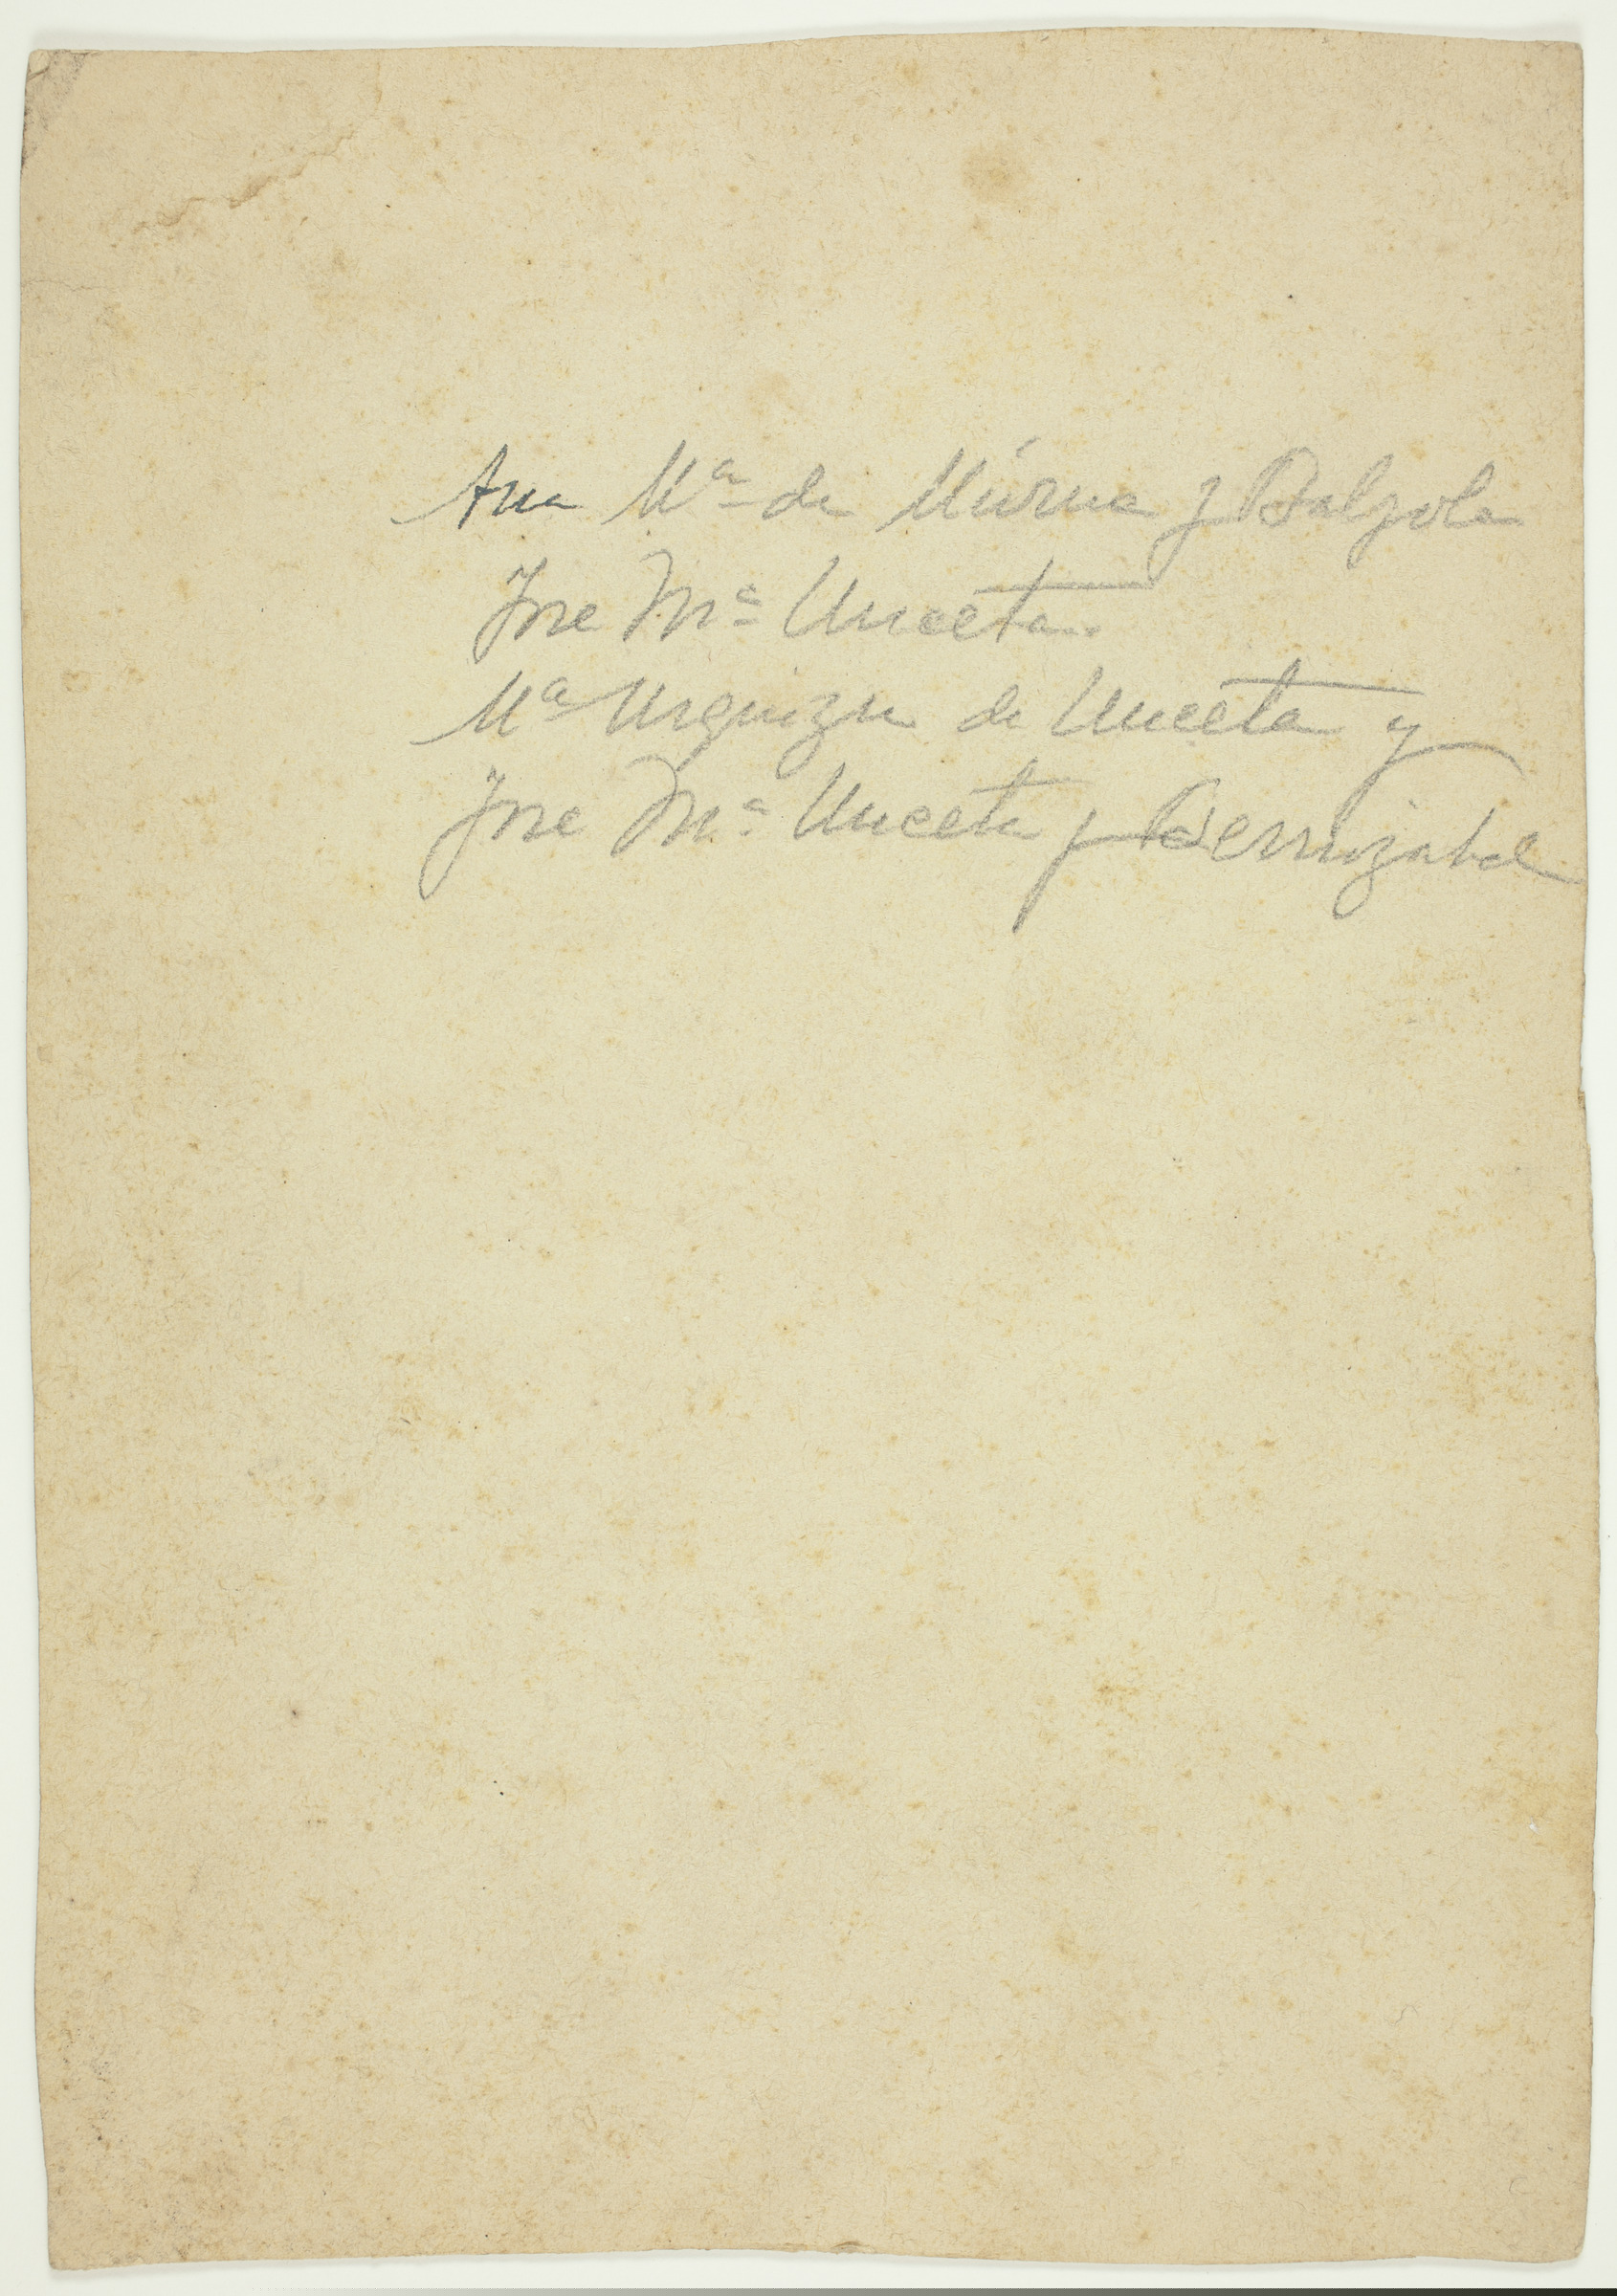 Ana Mª de Múrua y Balzola
Jose Mª Unceta.
Mª Urquizu de Unceta y
Jose Mª Unceta y Berrizabal